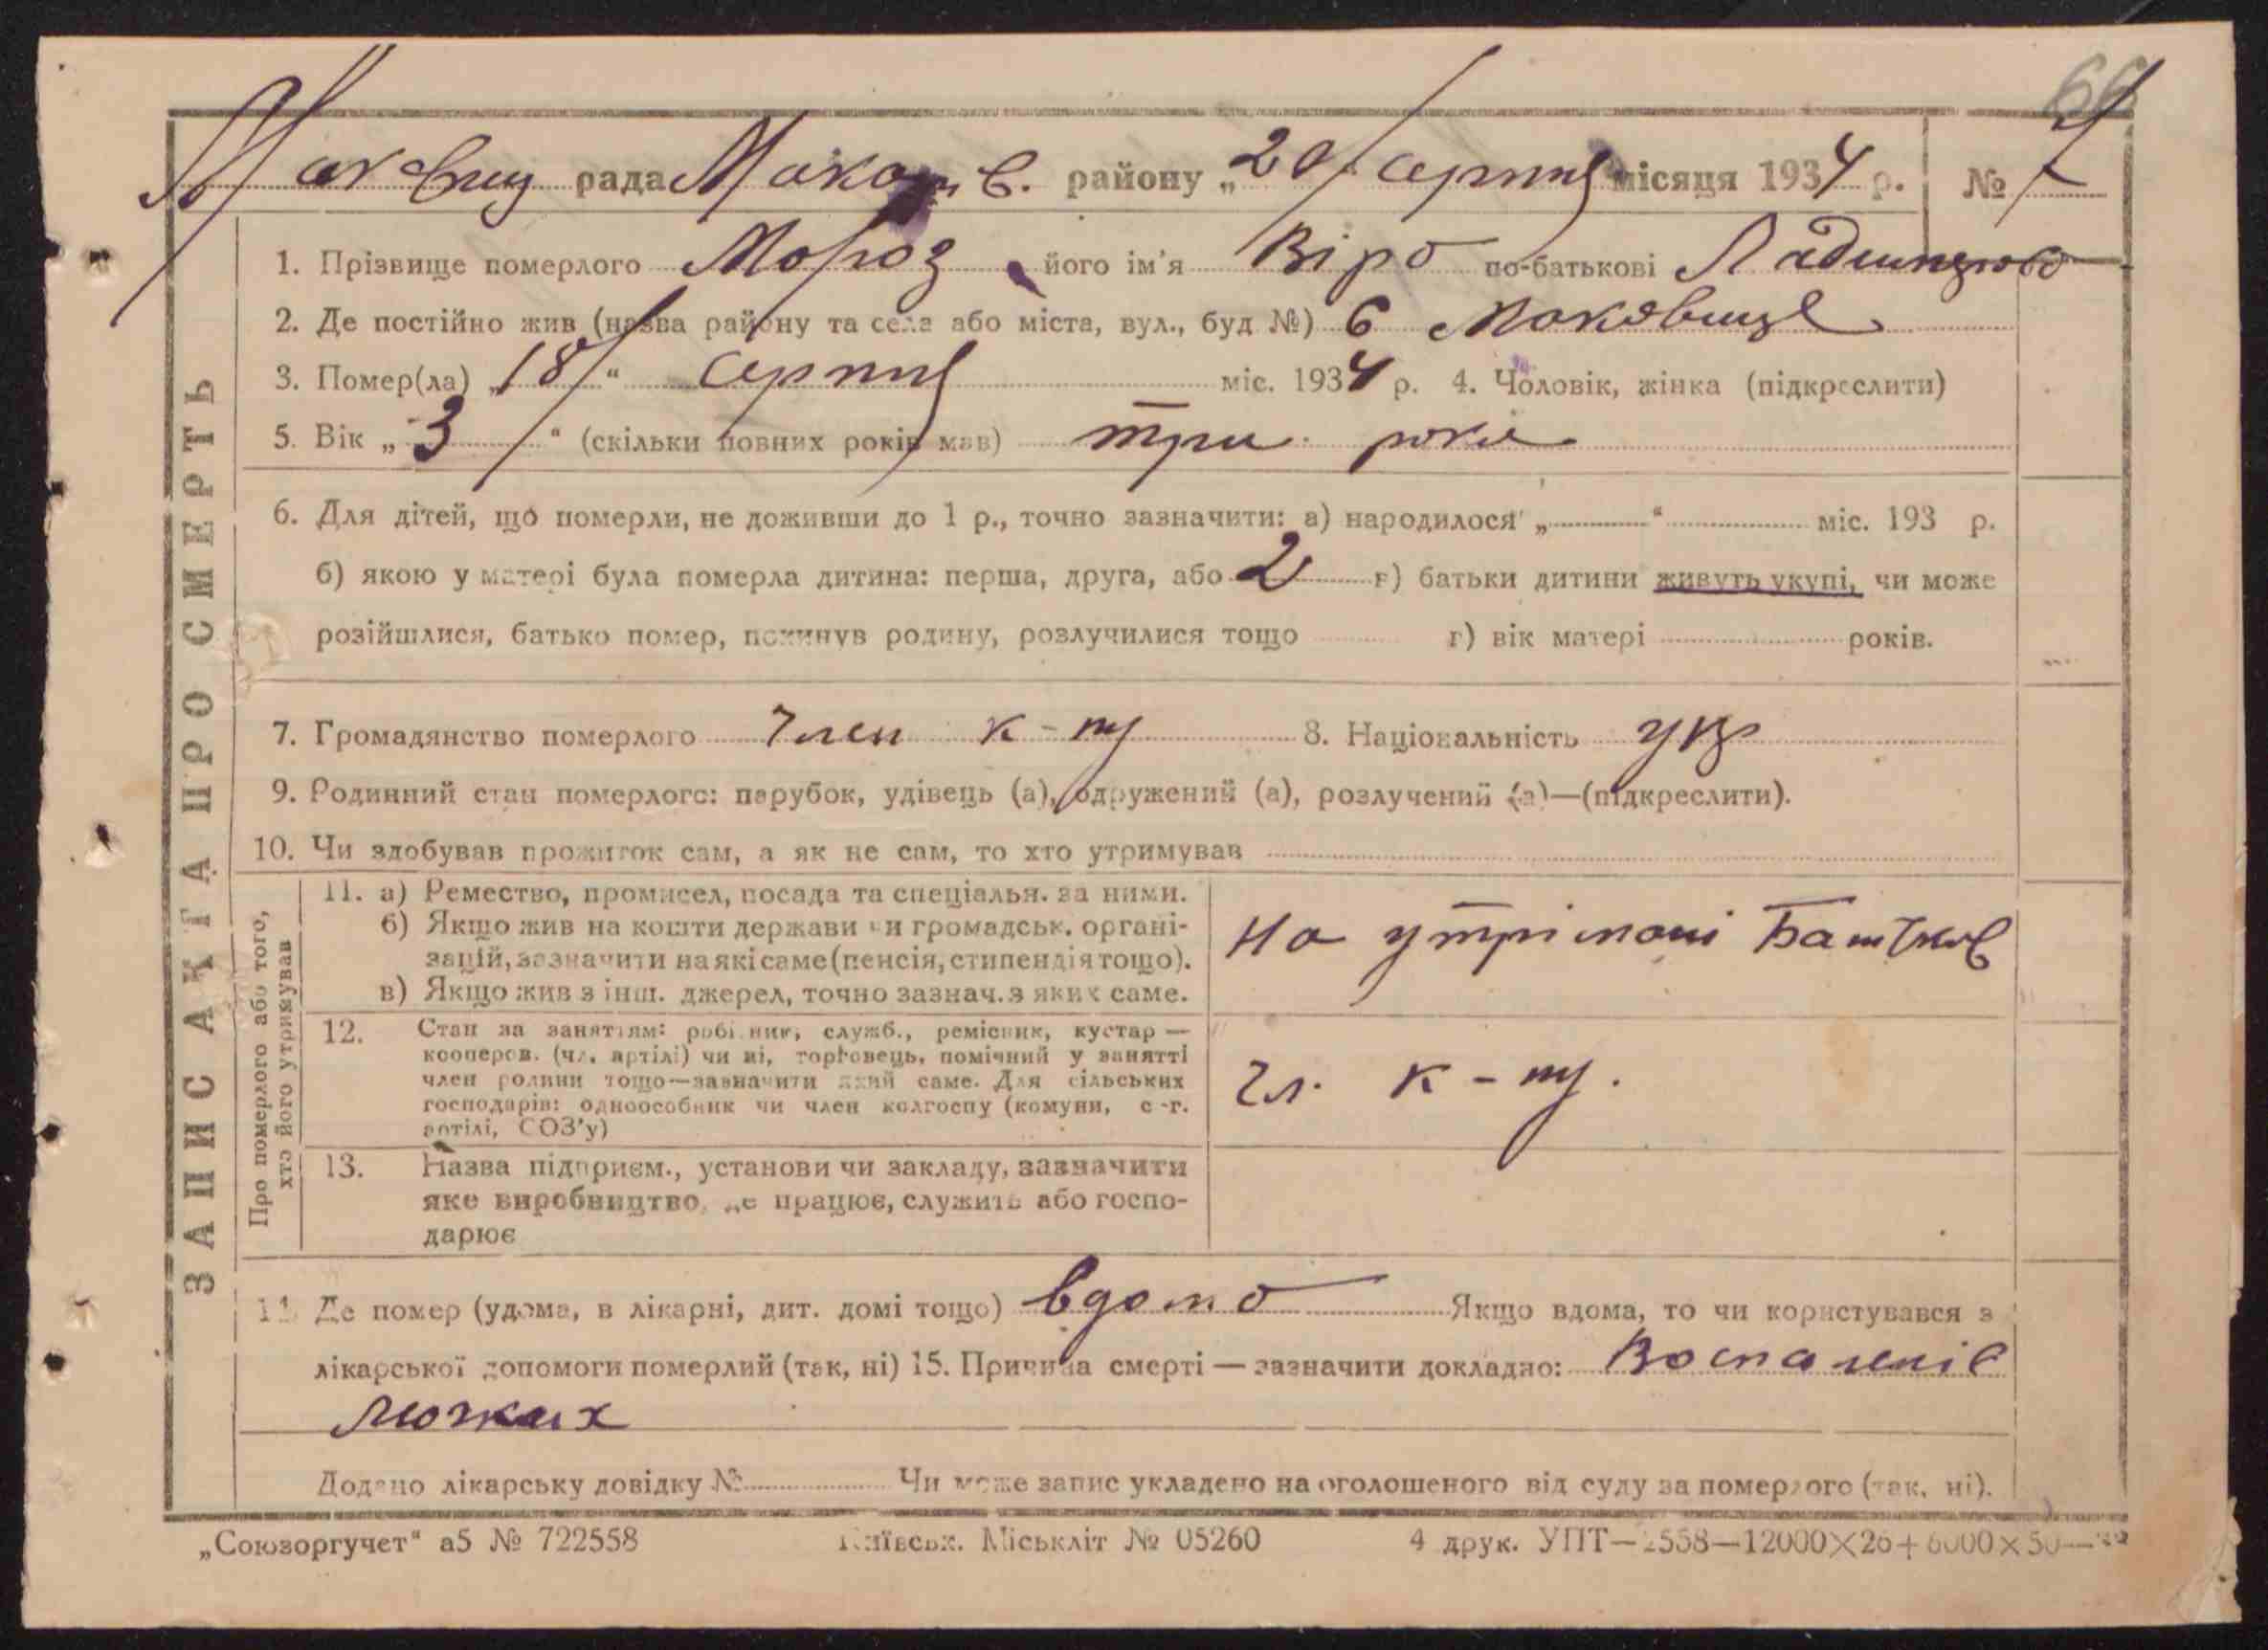 66
Маковищ рада Макарів. району „20" серпня місяця 1934 р. № 7
ЗАПИС АКТА ПРО СМЕРТЬ
1. Прізвище померлого Мороз його ім'я Віра по-батькові
2. Де постійно жив (назва району та села або міста, вул., буд №) с Маковище
3. Помер(ла) „18" серпня міс. 1934 р. 4. Чоловік, жінка (підкреслити)
5. Вік „3" (скільки повних років мав) три роки
6. Для дітей, що померли, не доживши до 1 р., точно зазначити: а) народилося „ " міс. 193 р.
б) якою у матері була померла дитина: перша, друга, або 2 в) батьки дитини живуть укупі, чи може
розійшлися, батько помер, покинув родину, розлучилися тощо г) вік матері років.
7. Громадянство померлого член к-пу 8. Національність укр
9. Родинний стан померлого: парубок, удівець (а), одружений (а), розлучений (а)—(підкреслити).
10. Чи здобував прожиток сам, а як не сам, то хто утримував
Про померлого або того,
хто його утримував
11. а) Ремество, промисел, посада та спеціальн. за ними.
б) Якщо жив на кошти держави чи громадськ. органі-
зацій, зазначити на які саме (пенсія, стипендія тощо).
в) Якщо жив з інш. джерел, точно зазнач. з яких саме.
На утрімані Батьков
12. Стан за заняттям: робітник, служб., ремісник, кустар —
кооперов. (чл. артілі) чи ні, торговець, помічний у занятті
член родини тощо—зазначити який саме. Для сільських
господарів: одноособник чи член колгоспу (комуни, с.-г.
артілі, СОЗ'у)
Чл. к-пу.
13. Назва підприєм., установи чи закладу, зазначити
яке виробництво, де працює, служить або госпо-
дарює
14. Де помер (удома, в лікарні, дит. домі тощо) вдома Якщо вдома, то чи користувався з
лікарської допомоги померлий (так, ні) 15. Причина смерті — зазначити докладно: Воспаленіє
Льожких
Додано лікарську довідку № Чи може запис укладено на оголошеного від суду за померлого (так, ні).
„Союзоргучет" а5 № 722558 Київськ. Міськліт № 05260 4 друк. УПТ—2558—12000×26+6000×50—